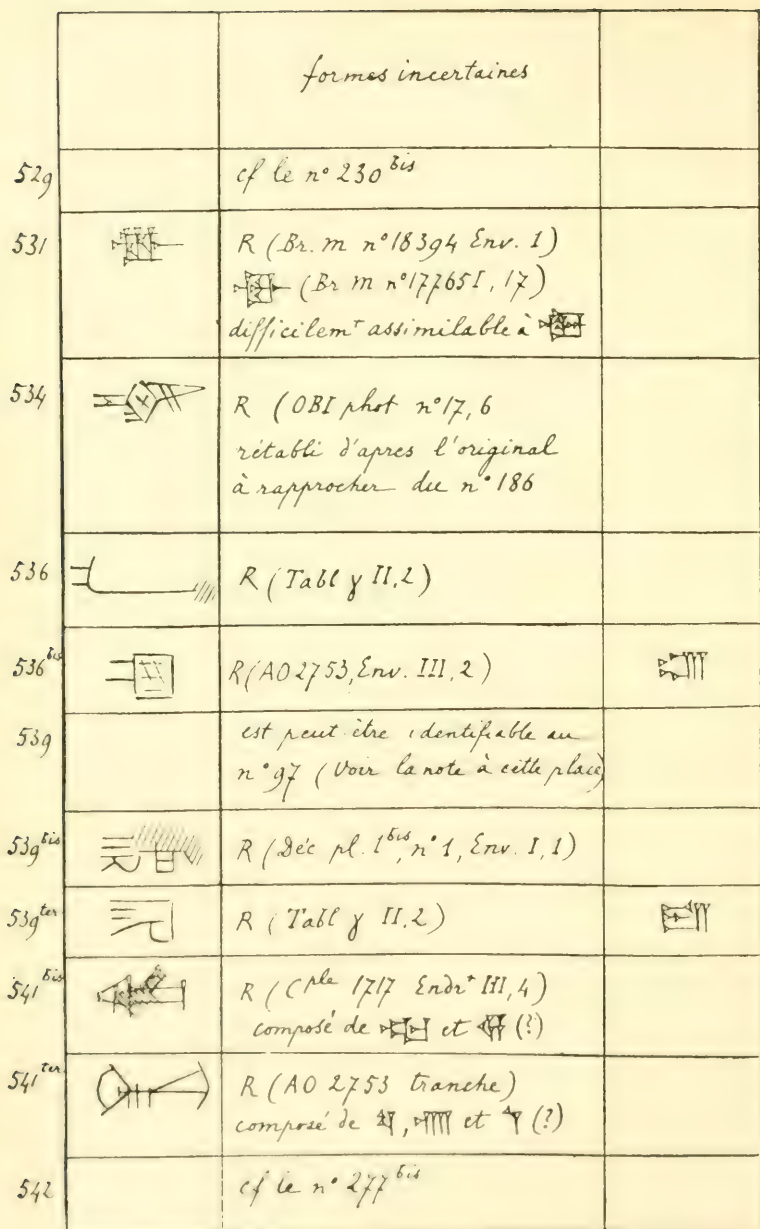 formes incertaines
529 cf le n° 230 bis
531 R (Br. m n° 18394 Env. 1)
(Br m n° 17765 I, 17)
difficilemt assimilable à
534 R (OBI phot n° 17, 6
rétabli d'apres l'original
à rapprocher du n° 186
536 R (Tabl γ II, 2)
536 bis R (AO 2753, Env. III, 2)
539 est peut être identifiable au
n° 97 (Voir la note à cette place)
539 bis R (Déc pl. 1 bis, n° 1, Env. I, 1)
539 ter R (Tabl γ II, 2)
541 bis R (Cple 1717 Endrt III, 4)
composé de et (?)
541 ter R (AO 2753 tranche)
composé de , et (?)
542 cf le n° 277 bis